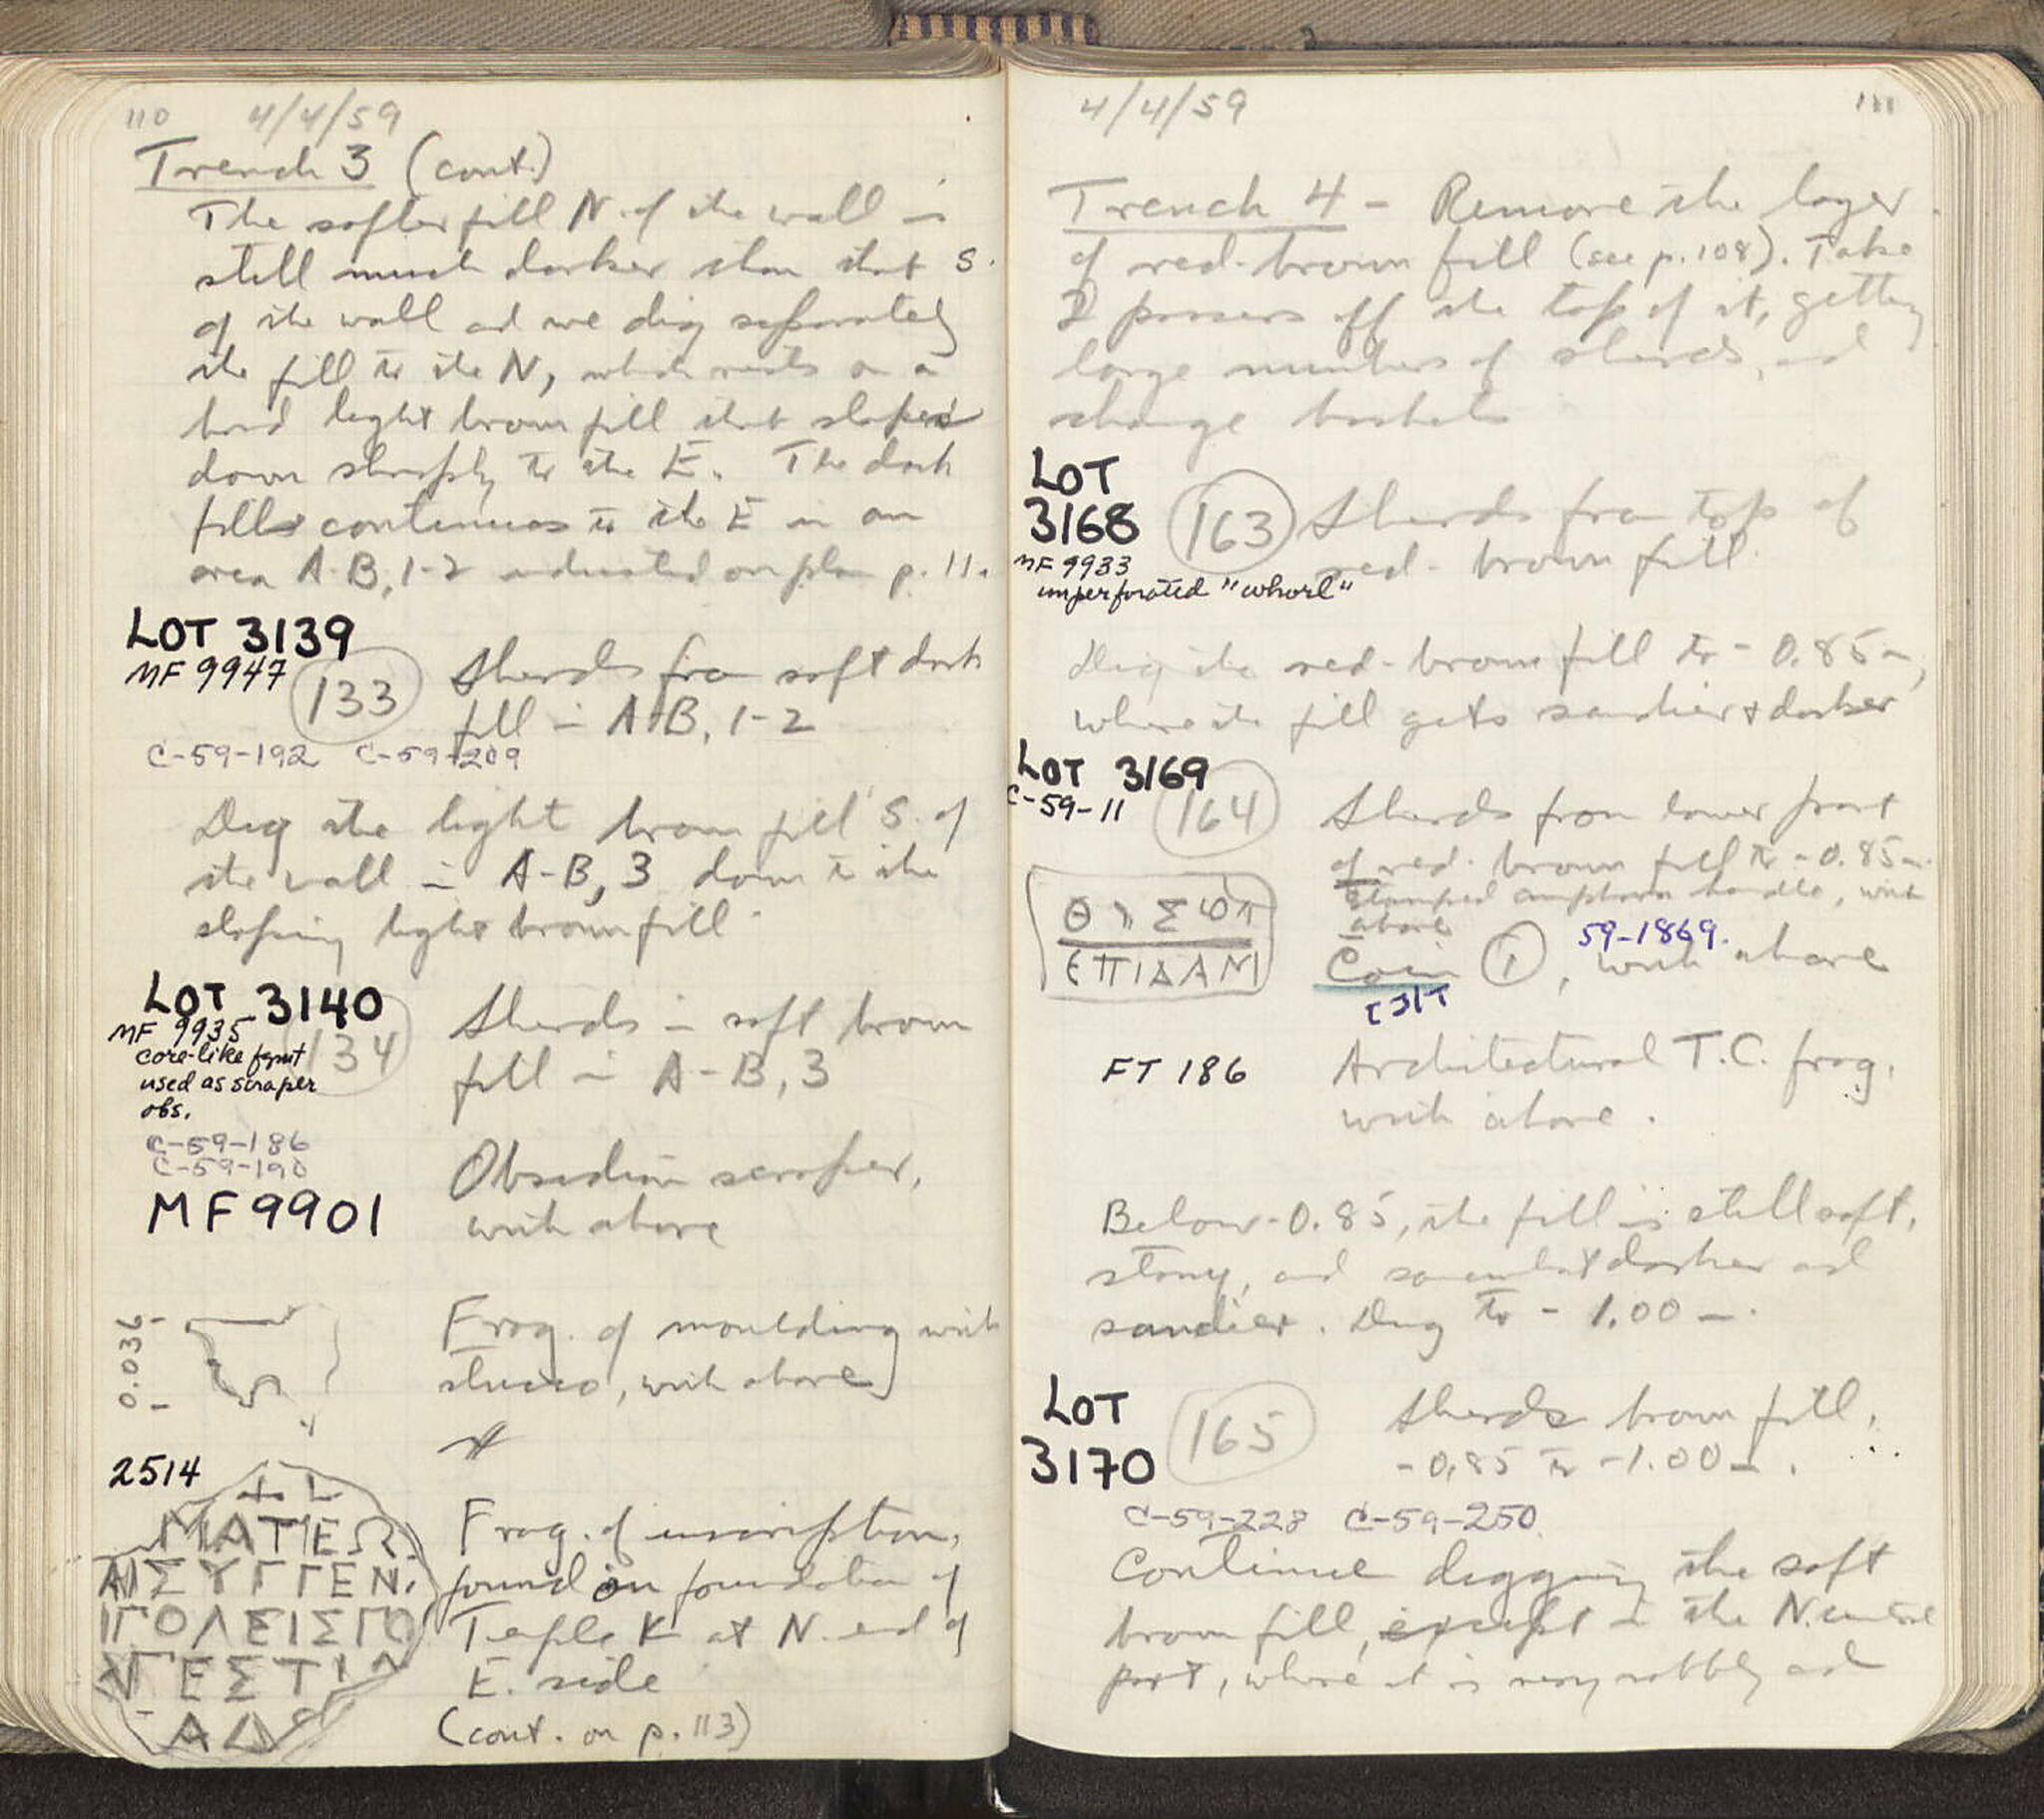 110 4/4/59
Trench 3 (cont.)
The softer fill N. of the wall is
still much darker than that S.
of the wall and we dig separately
the fill to the N, which rests on a
hard light brown fill that slopes
down sharply to the E. The dark
fill continues to the E in an
area A-B, 1-2 indicated on plan p. 11.
LOT 3139
MF 9947
133
Sherds from soft dark
fill in A-B, 1-2
C-59-192 C-59-209
Dig the light brown fill S. of
the wall in A-B, 3 down to the
sloping light brown fill.
LOT 3140
MF 9935
core-like fgmt
used as scraper
obs.
134
Sherds in soft brown
fill in A-B, 3
C-59-186
C-59-190
MF 9901
Obsidian scraper,
with above
0.036
Frag. of moulding with
stucco, with above
2514
ΜΑΤΙΕΩ
ΝΣΥΓΓΕΝ
ΙΠΟΛΕΙΣΠΟ
ΓΕΣΤΙ
ΑΔ
Frag. of inscription,
found on foundation of
Temple K at N. end of
E. side
(cont. on p. 113)
4/4/59 111
Trench 4 - Remove the layer
of red-brown fill (see p. 108). Take
2 passes off the top of it, getting
large numbers of sherds, and
change baskets
LOT
3168
MF 9933
imperforated "whorl"
163
Sherds from top of
red-brown fill.
Dig the red-brown fill to -0.85m,
where the fill gets sandier & darker
LOT 3169
C-59-11
164
Sherds from lower part
of red-brown fill to -0.85m.
Stamped amphora handle, with
above
ΕΠΙΔΑΜ
Coin 1, with above
59-1869.
FT 186
Architectural T.C. frag.
with above.
Below -0.85, the fill is still soft,
stony, and somewhat darker and
sandier. Dig to -1.00 m.
LOT
3170
165
Sherds brown fill,
-0.85 to -1.00 m.
C-59-228 C-59-250
Continue digging the soft
brown fill, except in the N. centre
part, where it is very rubbly and